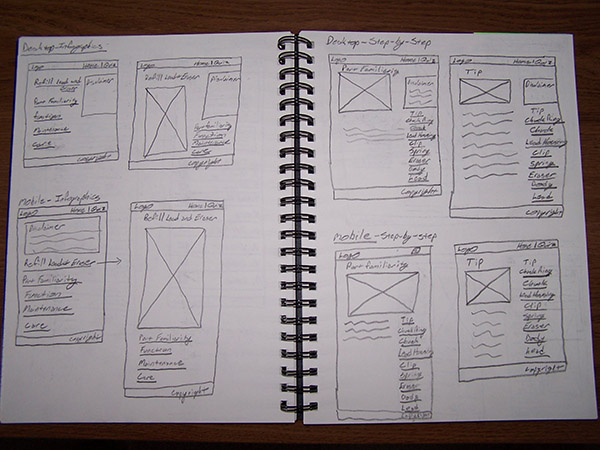 Desktop-Infographics
Logo Home | Quiz
Refill Lead and
Eraser
Disclaimer
Part Familiarity
Function
Maintenance
Care
Copyright
Logo Home | Quiz
Refill Lead & Eraser
Disclaimer
Part Familiarity
Function
Maintenance
Care
Copyright
Mobile - Infographics
Logo Home | Quiz
Disclaimer
Refill Lead & Eraser
Part Familiarity
Function
Maintenance
Care
Copyright
Logo Home | Quiz
Refill Lead and Eraser
Part Familiarity
Function
Maintenance
Care
Copyright
Desktop-Step-by-Step
Logo Home | Quiz
Part Familiarity
Disclaimer
Tip
Chuck Ring
Chuck
Lead Housing
Clip
Spring
Eraser
Body
Lead
Copyright
Logo Home | Quiz
Tip
Disclaimer
Tip
Chuck Ring
Chuck
Lead Housing
Clip
Spring
Eraser
Body
Lead
Copyright
Mobile-Step-by-Step
Logo
Part Familiarity
Tip
Chuck Ring
Chuck
Lead Housing
Clip
Spring
Eraser
Body
Lead
Copyright
Logo Home | Quiz
Tip
Tip
Chuck Ring
Chuck
Lead Housing
Clip
Spring
Eraser
Body
Lead
Copyright